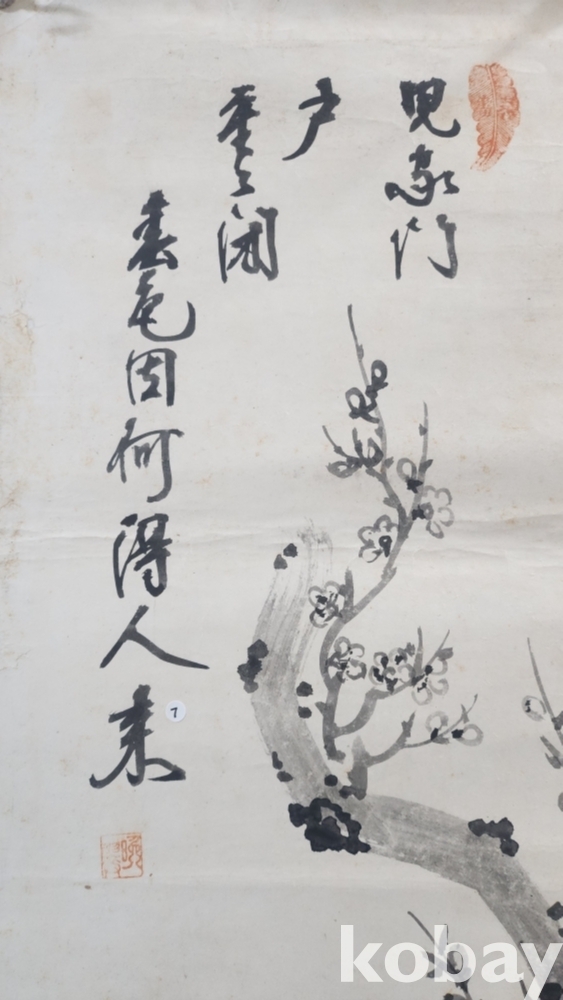 兒家門
戶
重々閉
春色因何得入來
7
kobay